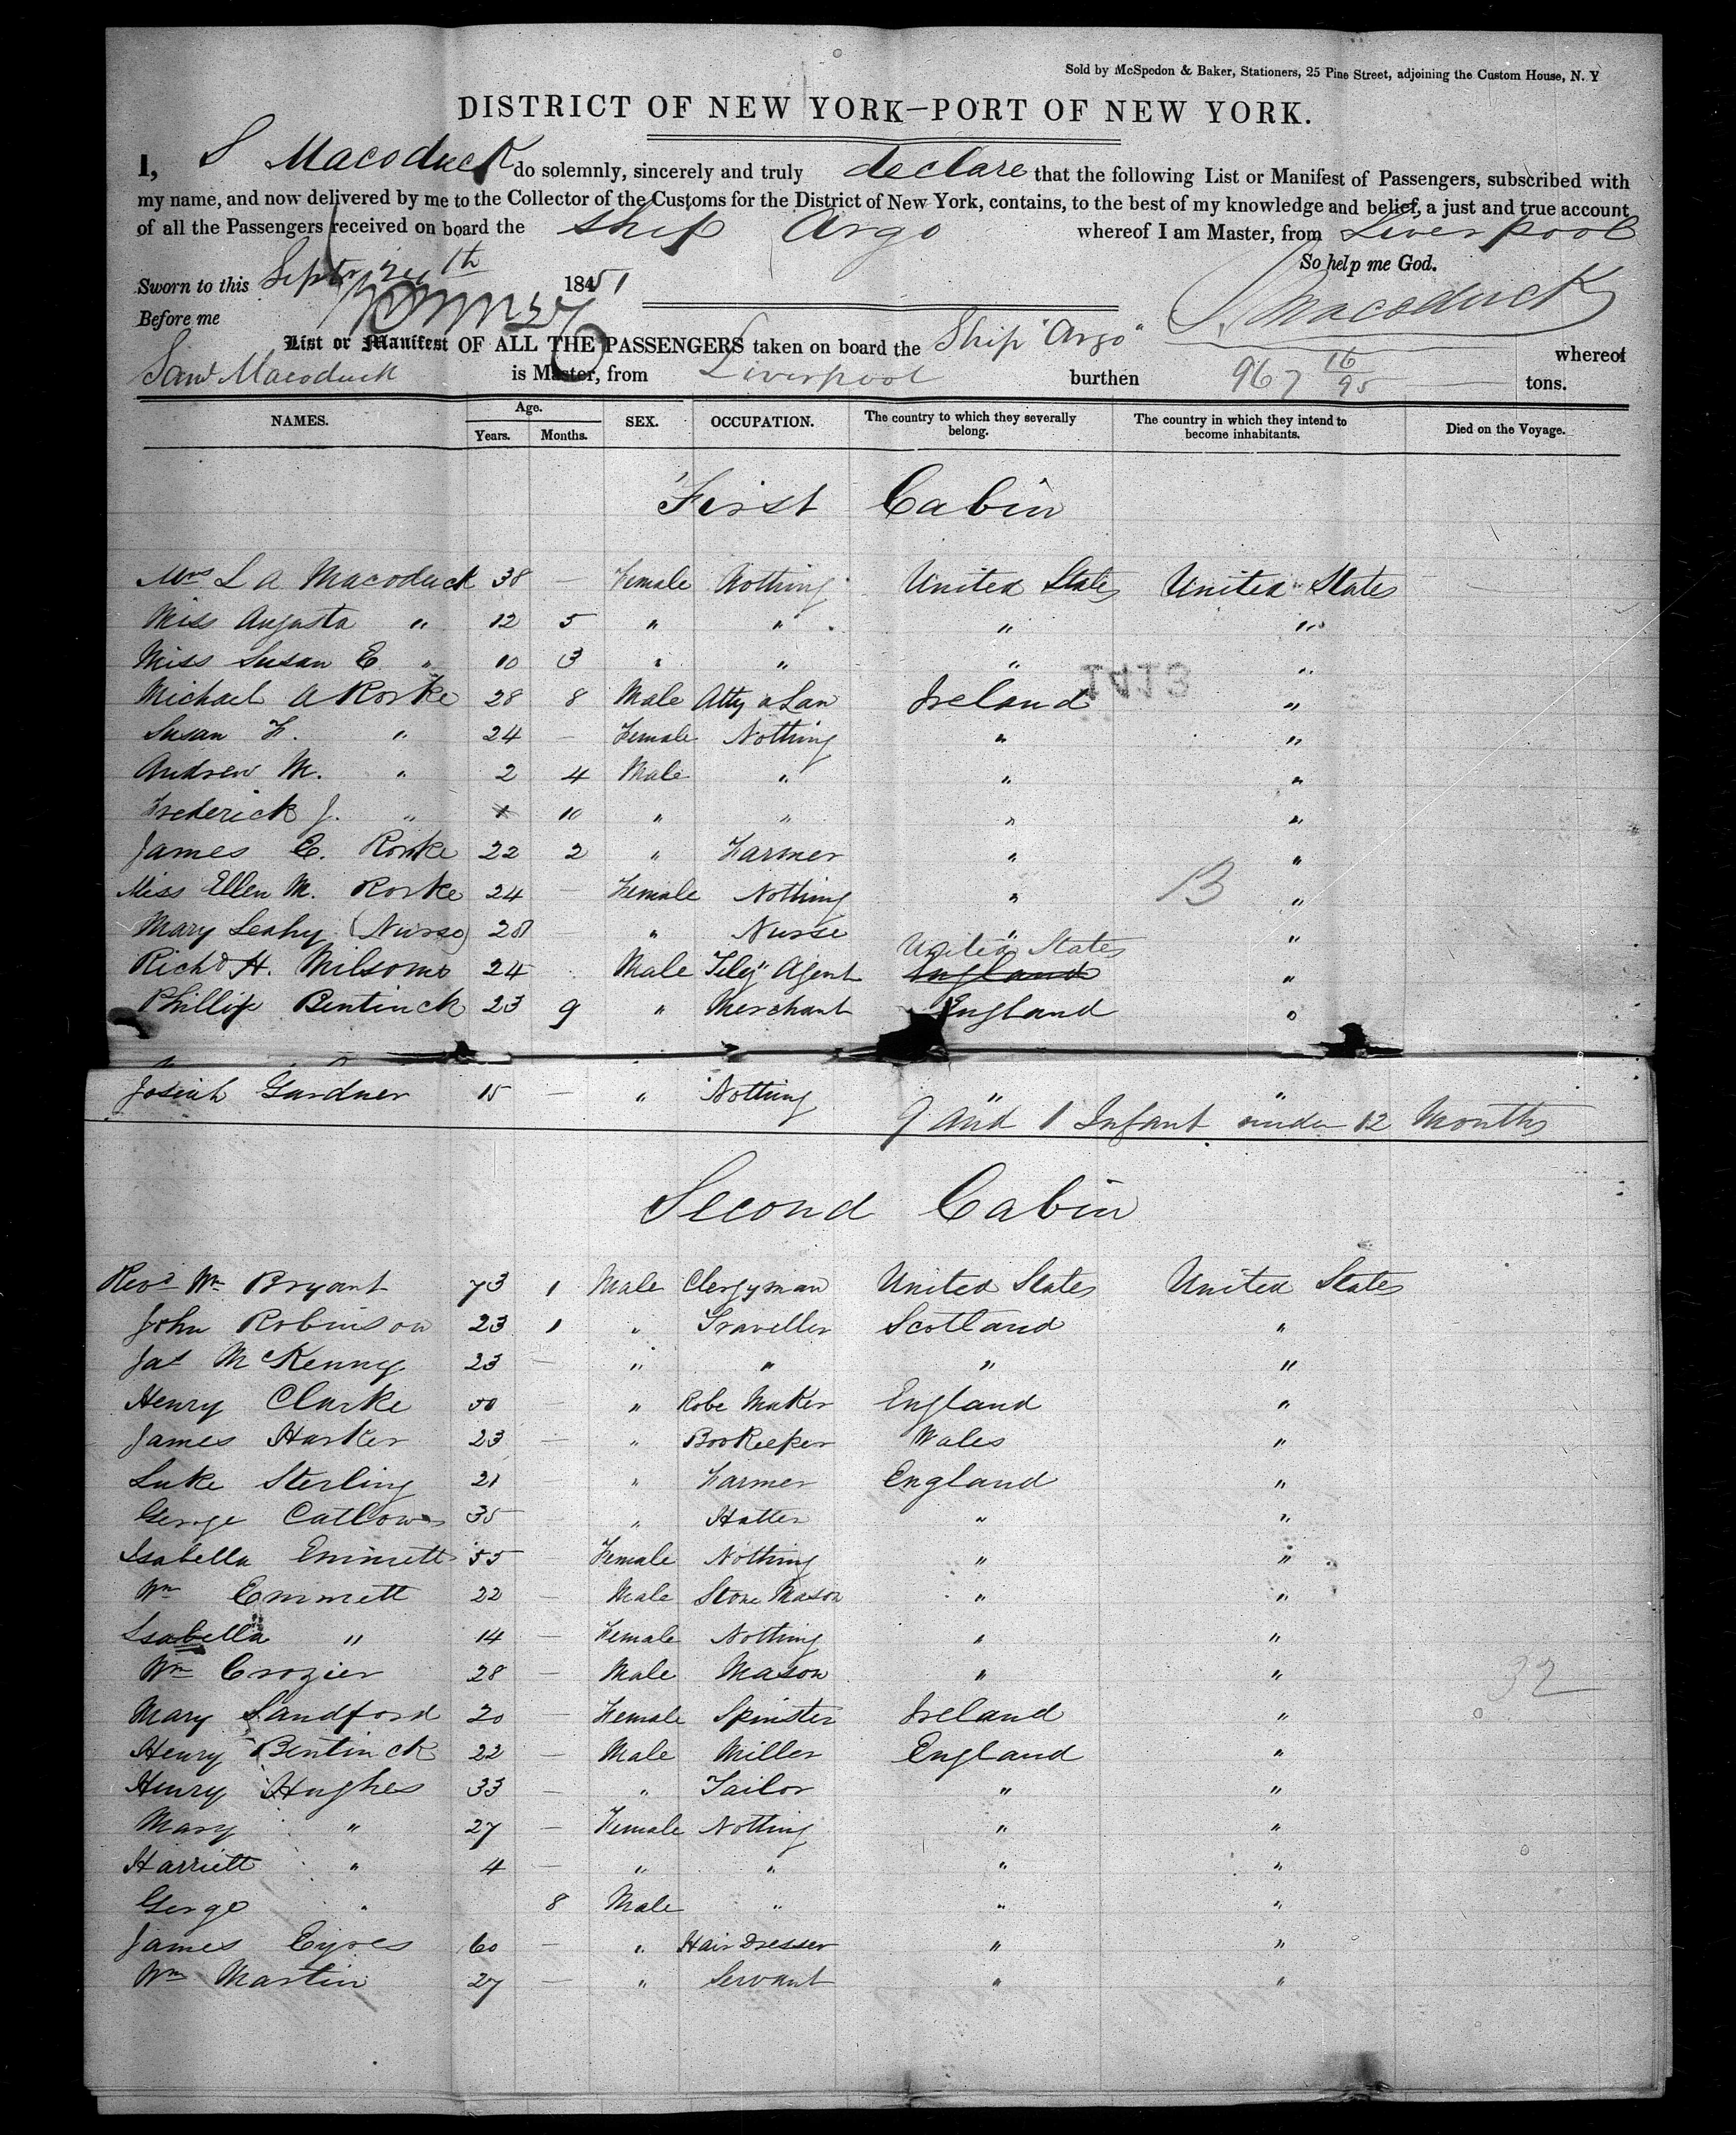 Sold by McSpedon & Baker, Stationers, 25 Pine Street, adjoining the Custom House, N. Y
DISTRICT OF NEW YORK—PORT OF NEW YORK.
I, S Macoduck do solemnly, sincerely and truly declare that the following List or Manifest of Passengers, subscribed with
my name, and now delivered by me to the Collector of the Customs for the District of New York, contains, to the best of my knowledge and belief, a just and true account
of all the Passengers received on board the Ship Argo whereof I am Master, from Liverpool
So help me God.
Sworn to this Septr 24th 1851
S. Macoduck
Before me
List or Manifest OF ALL THE PASSENGERS taken on board the Ship "Argo" whereof
Saml Macoduck is Master, from Liverpool burthen 967 16/95 tons.
NAMES. Age. Years. Months. SEX. OCCUPATION. The country to which they severally belong. The country in which they intend to become inhabitants. Died on the Voyage.
First Cabin
Mrs L A Macoduck 38 — Female Nothing United States United States
Miss Augusta " 12 5 " " " "
Miss Susan E. " 10 3 " " " "
1413
Michael A Rorke 28 8 Male Atty a Law Ireland "
Susan F. " 24 — Female Nothing " "
Andrew M. " 2 4 Male " " "
Frederick J. " 10 " " " "
James E. Rorke 22 2 " Farmer " "
13
Miss Ellen M. Rorke 24 — Female Nothing " "
Mary Leahy (Nurse) 28 — " Nurse " "
Richd H. Milsome 24 Male Agent England United States "
Phillip Bentinck 23 9 " Merchant England "
Josiah Gardner 15 — " Nothing " "
9 and 1 Infant under 12 Months
Second Cabin
Revd Wm Bryant 73 1 Male Clergyman United States United States
John Robinson 23 1 " Traveller Scotland "
Jas McKenny 23 — " " " "
Henry Clarke 50 — " Robe Maker England "
James Harker 23 — " Bookeeper Wales "
Luke Sterling 21 — " Farmer England "
George Catlow 35 — " Hatter " "
Isabella Emmett 55 Female Nothing " "
Wm Emmett 22 — Male Stone Mason " "
Isabella " 14 — Female Nothing " "
Wm Crozier 28 — Male Mason " "
32
Mary Sandford 20 — Female Spinster Ireland "
Henry Bentinck 22 — Male Miller England "
Henry Hughes 33 — " Tailor " "
Mary " 27 — Female Nothing " "
Harriett " 4 — " " " "
George " 8 Male " " "
James Eyres 60 — " Hair Dresser " "
Wm Martin 27 — " Servant " "